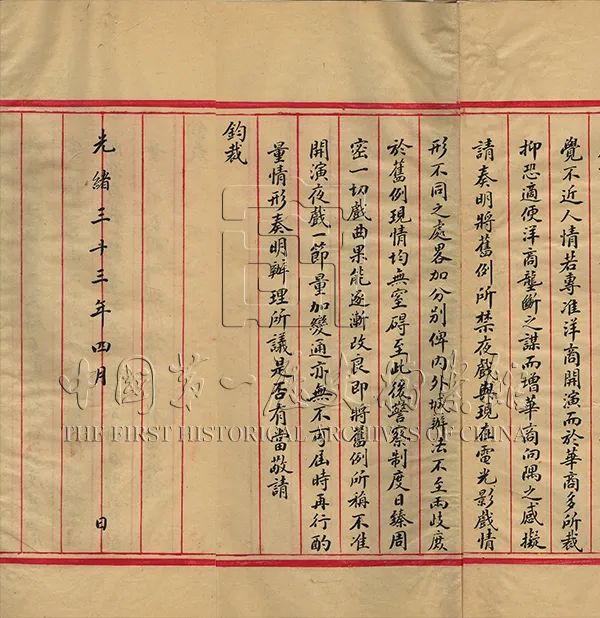 覺不近人情若專准洋商開演而於華商多所裁
抑恐適便洋商壟斷之謀而增華商向隅之感擬
請奏明將舊例所禁夜戲與現在電光影戲情
形不同之處畧加分别俾内外城辦法不至兩歧庶
於舊例現情均無窒碍至此後警察制度日臻周
密一切戲曲果能逐漸改良即將舊例所稱不准
開演夜戲一節量加變通亦無不可屆時再行酌
量情形奏明辦理所議是否有當敬請
鈞裁
光緒三十三年四月 日
中國第一歷史檔案館
THE FIRST HISTORICAL ARCHIVES OF CHINA